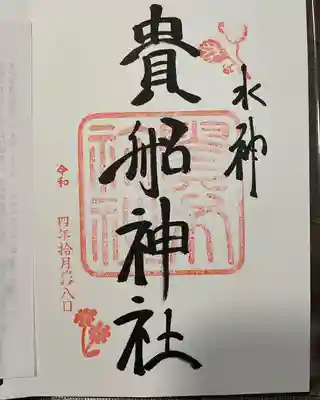 水神
貴船神社
令和
四年拾月
八日